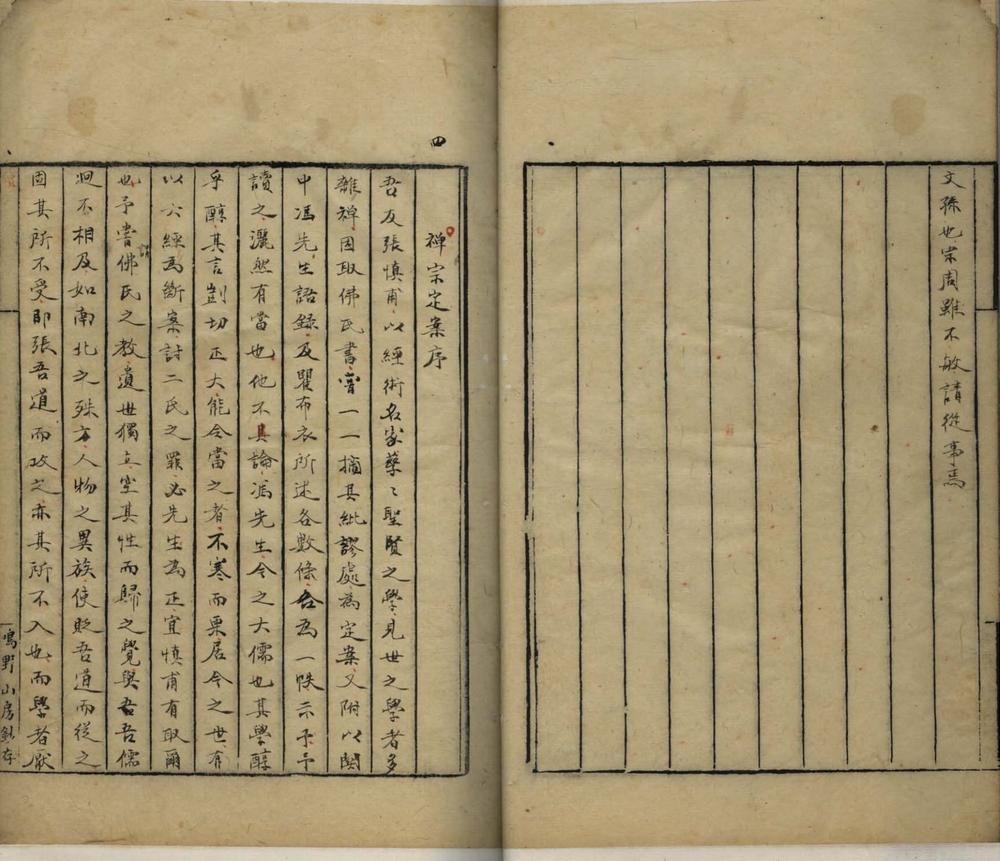 文孫也宗周雖不敏請從事焉
四
禅宗定案序
吾友張慎甫以經術名家藥〻聖賢之學見世之學者多
雜禅因取佛氏書嘗一一摘其紕謬處為定案又附以關
中馮先生語錄及瞿布衣所述各數條合為一帙示予予
讀之灑然有當也他不具論馮先生今之大儒也其學醇
乎醇其言剴切正大能令當之者不寒而栗居今之世有
以六經為斷案討二氏之罪必先生為正宜慎甫有取爾
也予嘗謂佛氏之教遺世獨立空其性而歸之覺與吾吾儒
迥不相及如南北之殊方人物之異族使貶吾道而從之
固其所不受即張吾道而攻之亦其所不入也而學者厭
鳴野山房鈔存